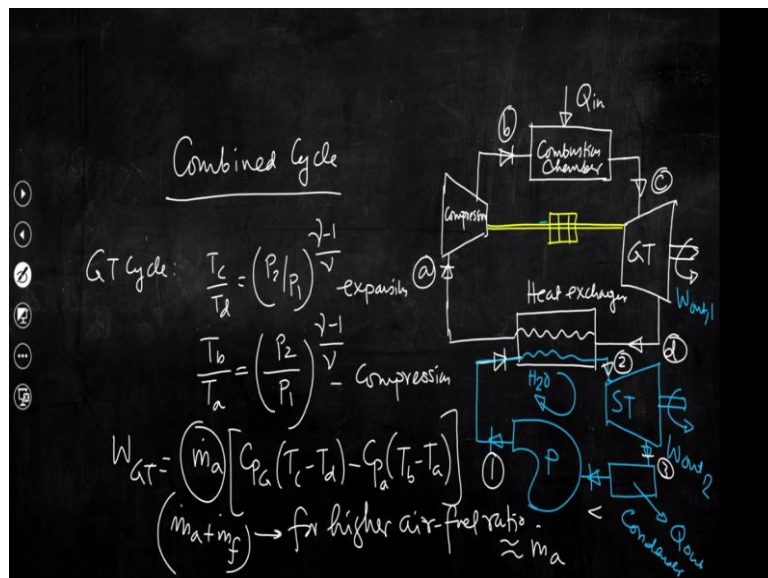 Combined Cycle
GT Cycle: T_c/T_d = (P_2/P_1)^{(γ-1)/γ} expansion
T_b/T_a = (P_2/P_1)^{(γ-1)/γ} - Compression
W_GT = ṁ_a [C_PG (T_c - T_d) - C_Pa (T_b - T_a)]
(ṁ_a + ṁ_f) → for higher air-fuel ratio.
≈ ṁ_a
Q_in
b
Combustion
Chamber
c
Compressor
GT
a
W_out,1
Heat exchanger
d
2
H2O
ST
1
P
W_out,2
3
<
Condenser
Q_out